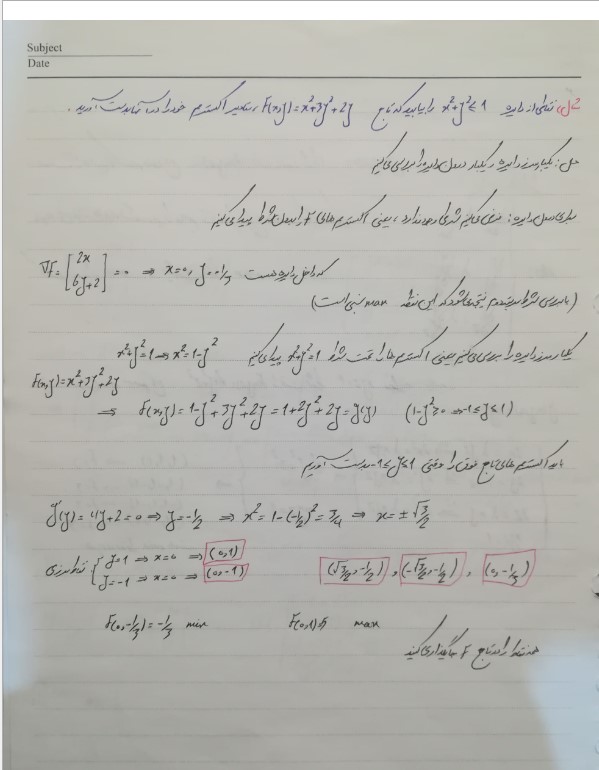 Subject
Date
مثال: نقاطی از دایره x²+y²≤1 را بیابید که تابع F(x,y)=x²+3y²+2y مقادیر اکسترمم خود را در آنها بدست آورید.
حل: یکبار مرز دایره و یکبار داخل دایره را بررسی می‌کنیم
برای داخل دایره: فرض می‌کنیم شرطی وجود ندارد، یعنی اکسترمم های F را بدون شرط پیدا می‌کنیم
∇F=[2x 6y+2]=0 ⇒ x=0, y=-1/3 که داخل دایره هست
(با بررسی شرط مرتبه دوم نتیجه می‌شود که این نقطه max نسبی است)
یکبار مرز دایره را بررسی می‌کنیم یعنی اکسترمم ها را تحت شرط x²+y²=1 پیدا می‌کنیم x²+y²=1 ⇒ x²=1-y²
F(x,y)=x²+3y²+2y
⇒ F(x,y)=1-y²+3y²+2y=1+2y²+2y=g(y) (1-y²≥0 ⇒ -1≤y≤1)
اکسترمم های تابع فوق را وقتی -1≤y≤1 بدست آوریم
g'(y)=4y+2=0 ⇒ y=-1/2 ⇒ x²=1-(-1/2)²=3/4 ⇒ x=±√3/2
نقاط مرزی { y=1 ⇒ x=0 ⇒ (0,1)
y=-1 ⇒ x=0 ⇒ (0,-1)
(√3/2,-1/2), (-√3/2,-1/2), (0,-1/3)
F(0,-1/3)=-1/3 min F(0,1)=5 max
همه نقاط را در تابع F جایگذاری کنید